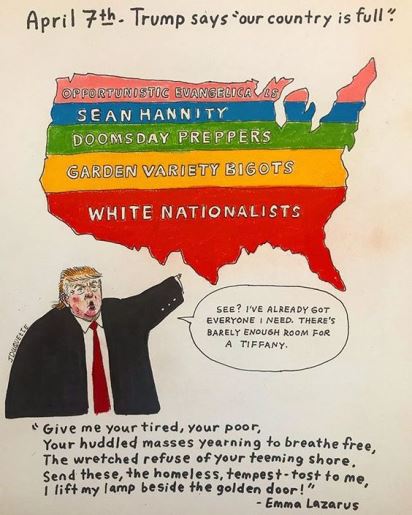 April 7th - Trump says "our country is full".
OPPORTUNISTIC EVANGELICALS
SEAN HANNITY
DOOMSDAY PREPPERS
GARDEN VARIETY BIGOTS
WHITE NATIONALISTS
SEE? I'VE ALREADY GOT
EVERYONE I NEED. THERE'S
BARELY ENOUGH ROOM FOR
A TIFFANY.
"Give me your tired, your poor,
Your huddled masses yearning to breathe free,
The wretched refuse of your teeming shore.
Send these, the homeless, tempest-tost to me,
I lift my lamp beside the golden door!"
- Emma Lazarus